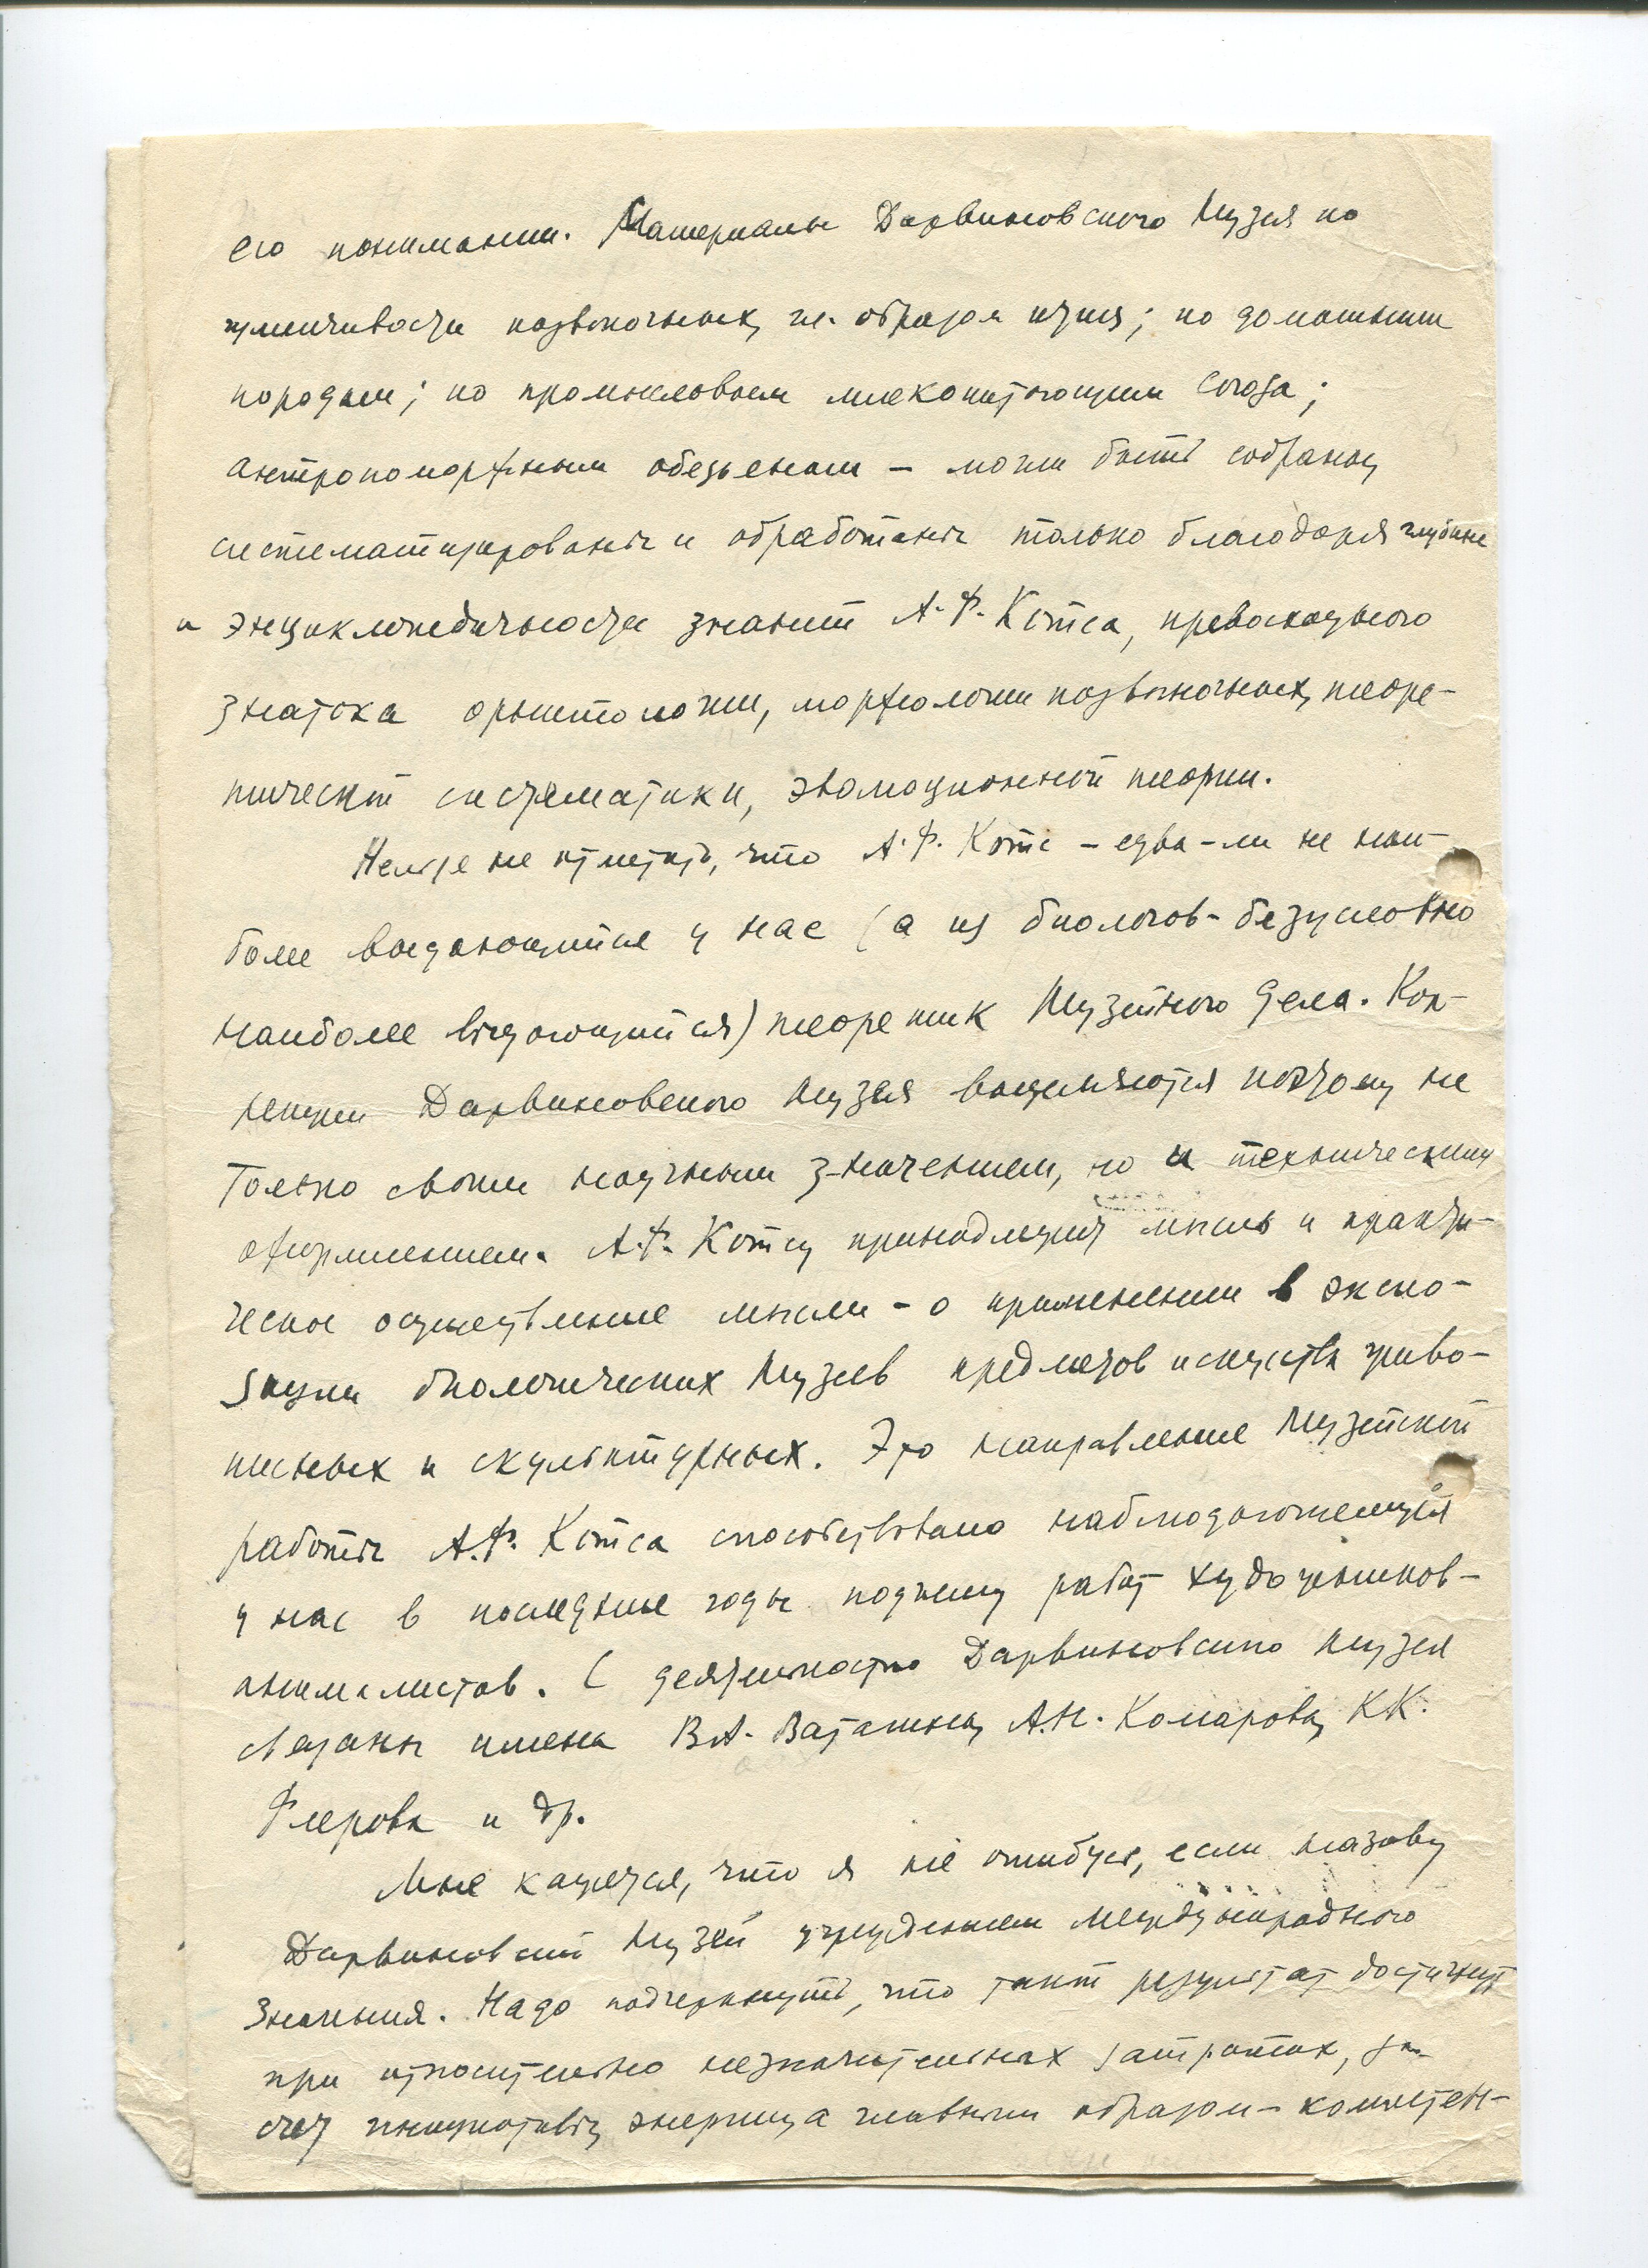 его понимании. Материалы Дарвиновского Музея по
изменчивости позвоночных, гл. образом птиц; по домашним
породам; по промысловым млекопитающим Союза;
антропоморфным обезьянам – могли быть собраны,
систематизированы и обработаны только благодаря глубине
и энциклопедичности знаний А.Ф. Котса, превосходного
знатока орнитологии, морфологии позвоночных, теоре-
тической систематики, эволюционной теории.
Нельзя не отметить, что А.Ф. Котс – едва-ли не наи-
более выдающийся у нас (а из биологов – безусловно
наиболее выдающийся) теоретик Музейного дела.
Дарвиновского Музея выделяются поэтому не
только своим научным значением, но и техническим
оформлением. А.Ф. Котсу принадлежит мысль и практи-
ческое осуществление мысли – о применении в экспо-
зиции биологических Музеев предметов искусства живо-
писных и скульптурных. Это направление Музейской
работы А.Ф. Котса способствовало наблюдающемуся
у нас в последние годы подъему работ художников-
анималистов. С деятельностью Дарвиновского Музея
связаны имена В.А. Ватагина, А.Н. Комарова, К.К.
Флерова и др.
Мне кажется, что я не ошибусь, если назову
Дарвиновский Музей учреждением международного
значения. Надо подчеркнуть, что такой результат достигнут
при относительно незначительных затратах, за
счет инициативы, энергии, а главным образом – компетен-